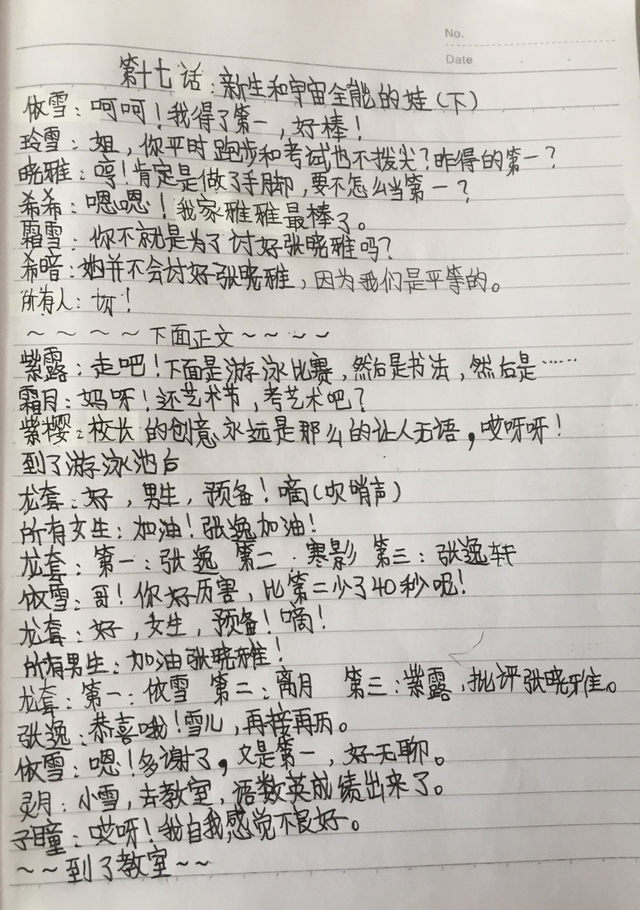 No.
Date
第十七话:新生和宇宙全能的娃(下)
依雪:呵呵!我得了第一,好棒!
玲雪:姐,你平时跑步和考试也不拔尖?咋得的第一?
晓雅:哼!肯定是做了手脚,要不怎么当第一?
希希:嗯嗯!我家雅雅最棒了。
霜雪:你不就是为了讨好张晓雅吗?
希暗:她并不会讨好张晓雅,因为我们是平等的。
所有人:切!
~~~~下面正文~~~~
紫露:走吧!下面是游泳比赛,然后是书法,然后是……
霜月:妈呀!还艺术节,考艺术吧?
紫樱:校长的创意永远是那么的让人无语,哎呀呀!
到了游泳池后
龙套:好,男生,预备!嘀(吹哨声)
所有女生:加油!张逸加油!
龙套:第一:张逸 第二:寒影 第三:张逸轩
依雪:哥!你好厉害,比第二少了40秒呢!
龙套:好,女生,预备!嘀!
所有男生:加油张晓雅!
龙套:第一:依雪 第二:离月 第三:紫露,批评张晓雅。
张逸:恭喜哦!雪儿,再接再厉。
依雪:嗯!多谢了,又是第一,好无聊。
灵月:小雪,去教室,语数英成绩出来了。
子瞳:哎呀!我自我感觉不良好。
~~到了教室~~